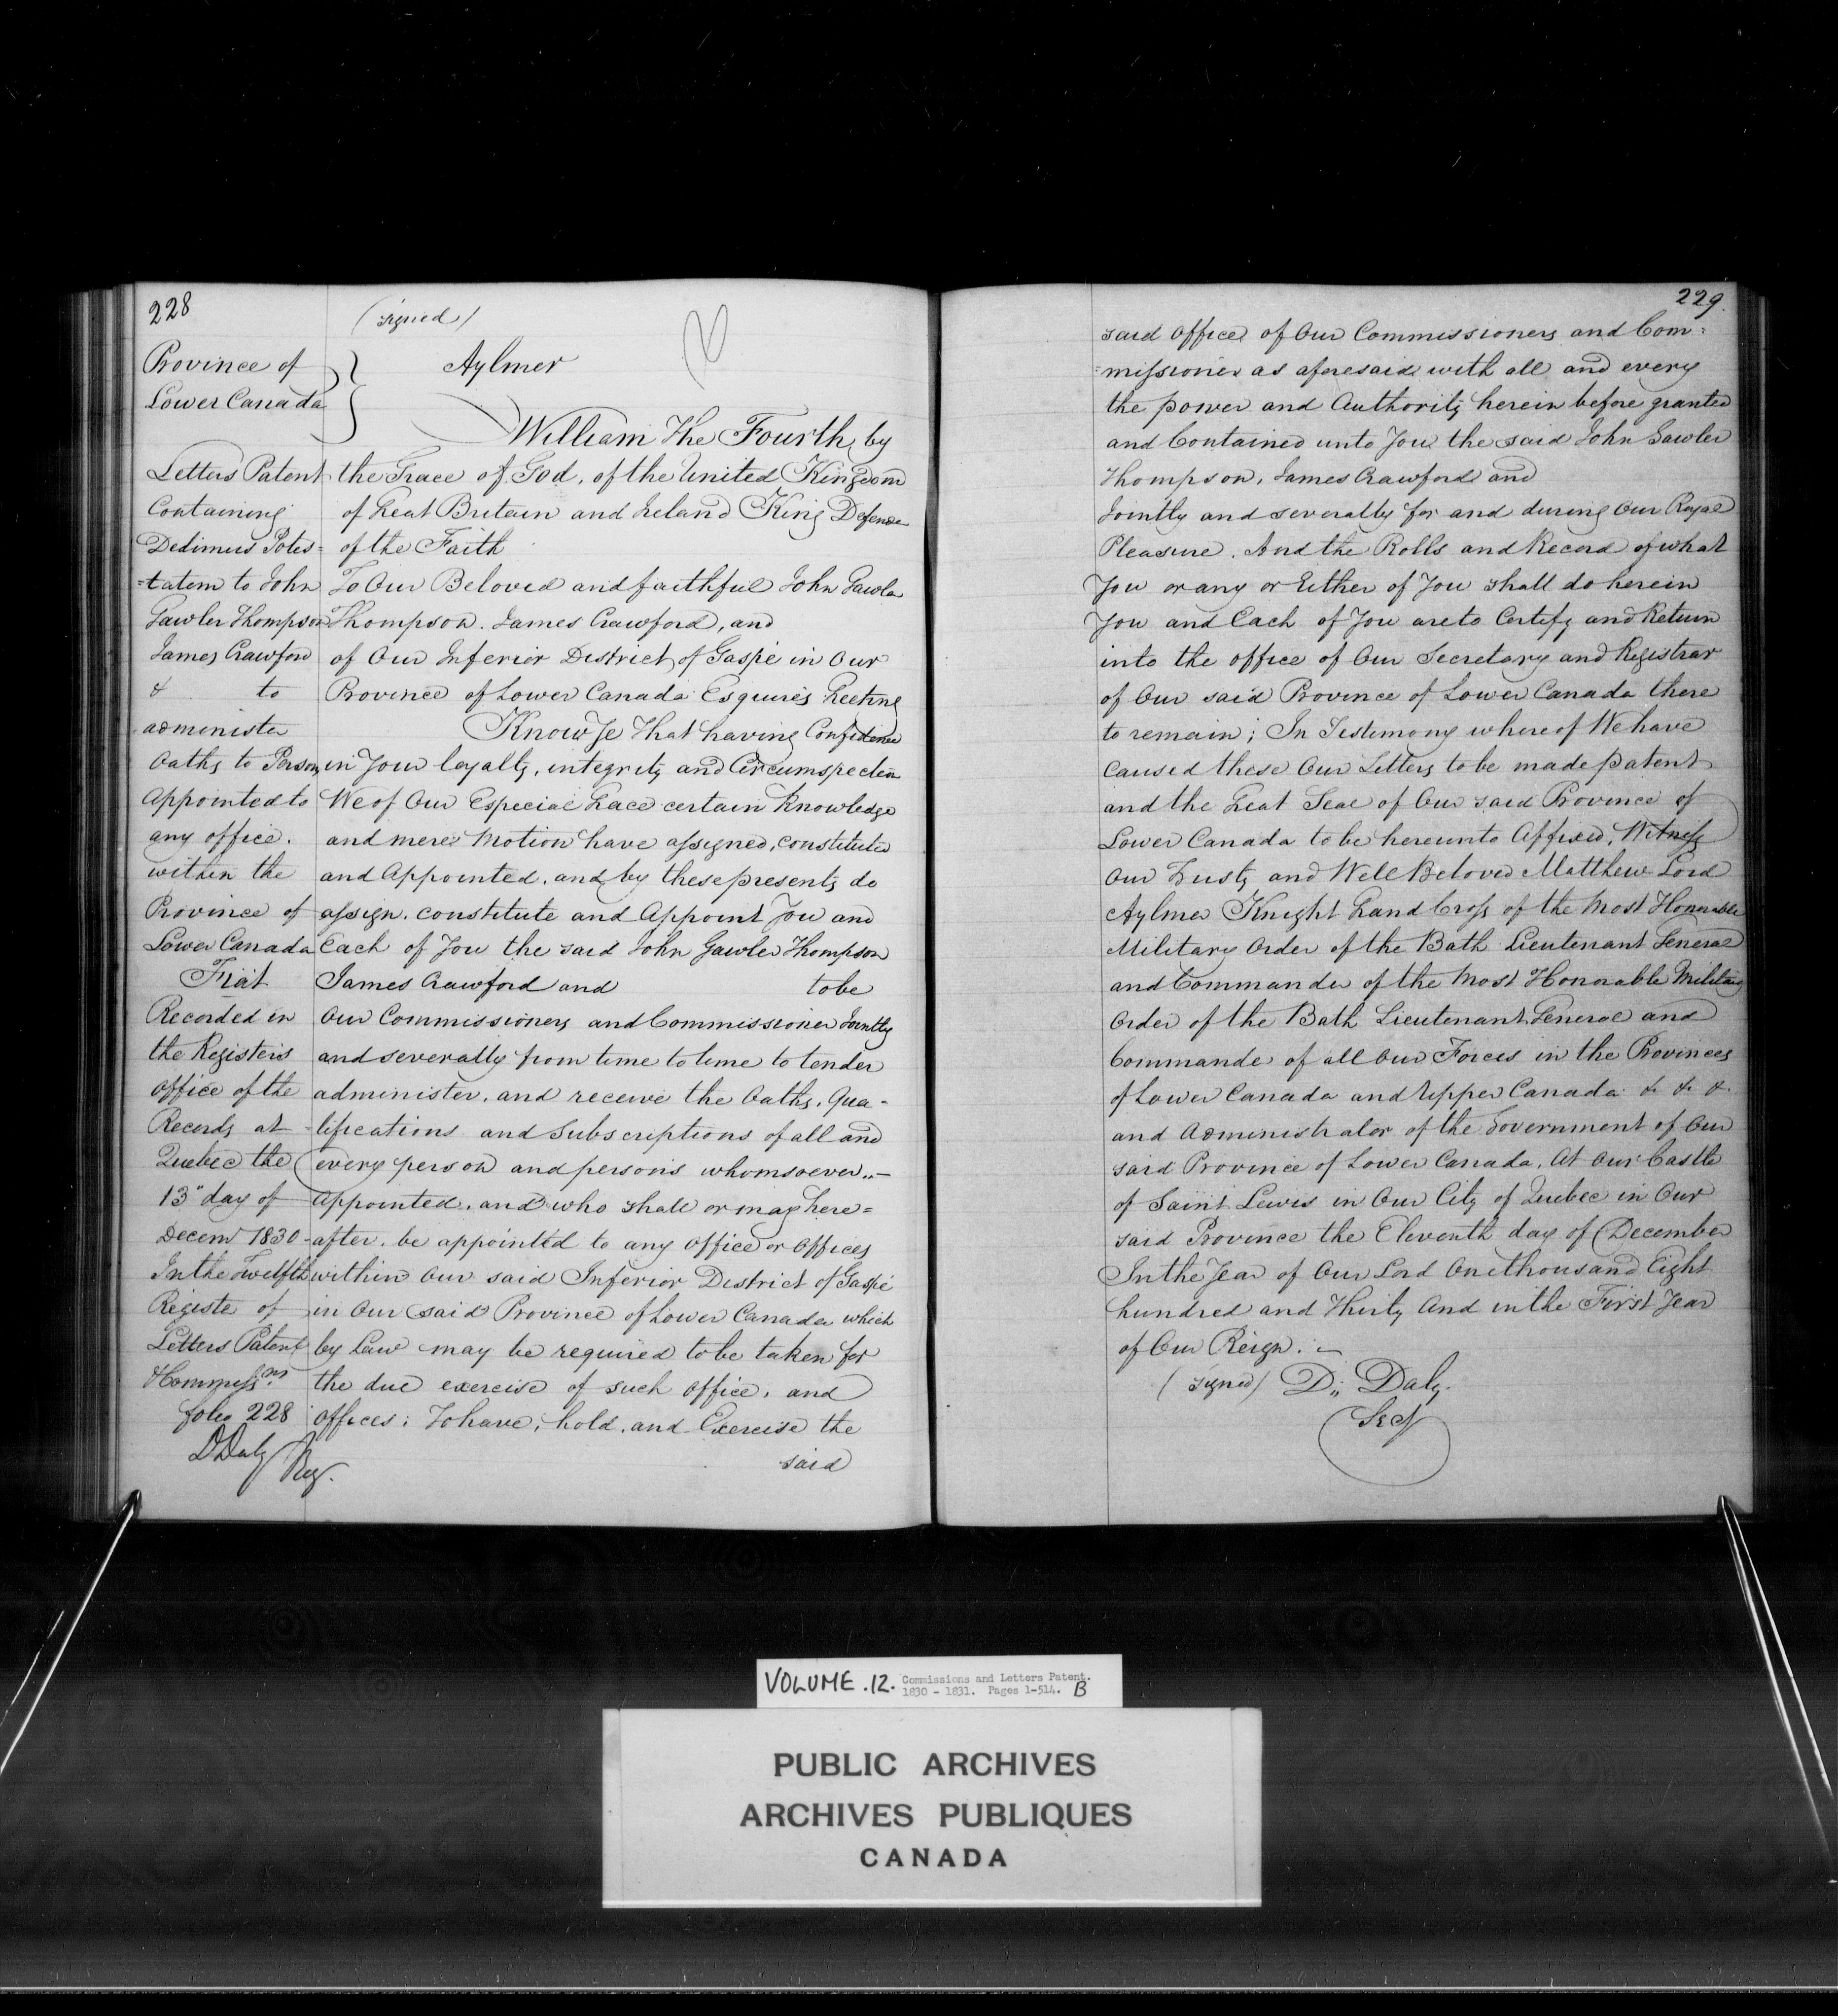 228
(signed)
Province of
Lower Canada
Aylmer
Letters Patent
Containing
Dedimus Potes=
=tatem to John
Gawler Thompson
James Crawford
& to
administer
Oaths to Persons
Appointed to
any office
within the
Province of
Lower Canada
Fiat
Recorded in
the Registers
office of the
Records at
Quebec the
13" day of
Decemr 1830
In the Twelfth
Register of
Letters Patent
& Commissns
folio 228
D Daly Reg.
William The Fourth, by
the Grace of God, of the United Kingdom
of Great Britain and Ireland King Defender
of the Faith
To Our Beloved and faithful John Gawler
Thompson, James Crawford, and
of Our Inferior District of Gaspé in Our
Province of Lower Canada Esquires Greeting
Know Ye That having Confidence
in Your loyalty, integrity and Circumspection
We of Our Especial Grace certain Knowledge
and mere Motion have assigned, constituted
and Appointed, and by these presents do
assign, constitute and Appoint You and
Each of You the said John Gawler Thompson
James Crawford and to be
Our Commissioners and Commissioner Jointly
and severally from time to time to tender
administer, and receive the Oaths, Qua-
-lifications and Subscriptions of all and
every person and persons whomsoever,,-
Appointed, and who shall or may here=
-after, be appointed to any Office or Offices
within Our said Inferior District of Gaspé
in Our said Province of Lower Canada which
by Law may be required to be taken for
the due exercise of such office, and
offices; To have, hold, and Exercise the
said
229.
said Office of Our Commissioners and Com=
=missioner as aforesaid with all and every
the power and Authority herein before granted
and Contained unto You the said John Gawler
Thompson, James Crawford and
Jointly and severally for and during Our Royal
Pleasure. And the Rolls and Record of what
You or any or Either of You shall do herein
You and Each of You are to Certify and Return
into the office of Our Secretary and Registrar
of Our said Province of Lower Canada there
to remain; In Testimony whereof We have
Caused these Our Letters to be made patent
and the Great Seal of Our said Province of
Lower Canada to be hereunto Affixed, Witness
Our Trusty and Well Beloved Matthew Lord
Aylmer Knight Grand Cross of the Most Honorable
Military Order of the Bath Lieutenant General
and Commander of the Most Honorable Military
Order of the Bath Lieutenant General and
Commander of all Our Forces in the Provinces
of Lower Canada and Upper Canada &. &. &.
and Administrator of the Government of Our
said Province of Lower Canada. At Our Castle
of Saint Lewis in Our City of Quebec in Our
said Province the Eleventh day of December
In the Year of Our Lord One thousand Eight
hundred and Thirty And in the First Year
of Our Reign. :-
(signed) D,, Daly.
Secy
VOLUME .12. Commissions and Letters Patent.
1830 - 1831. Pages 1-514. B
PUBLIC ARCHIVES
ARCHIVES PUBLIQUES
CANADA